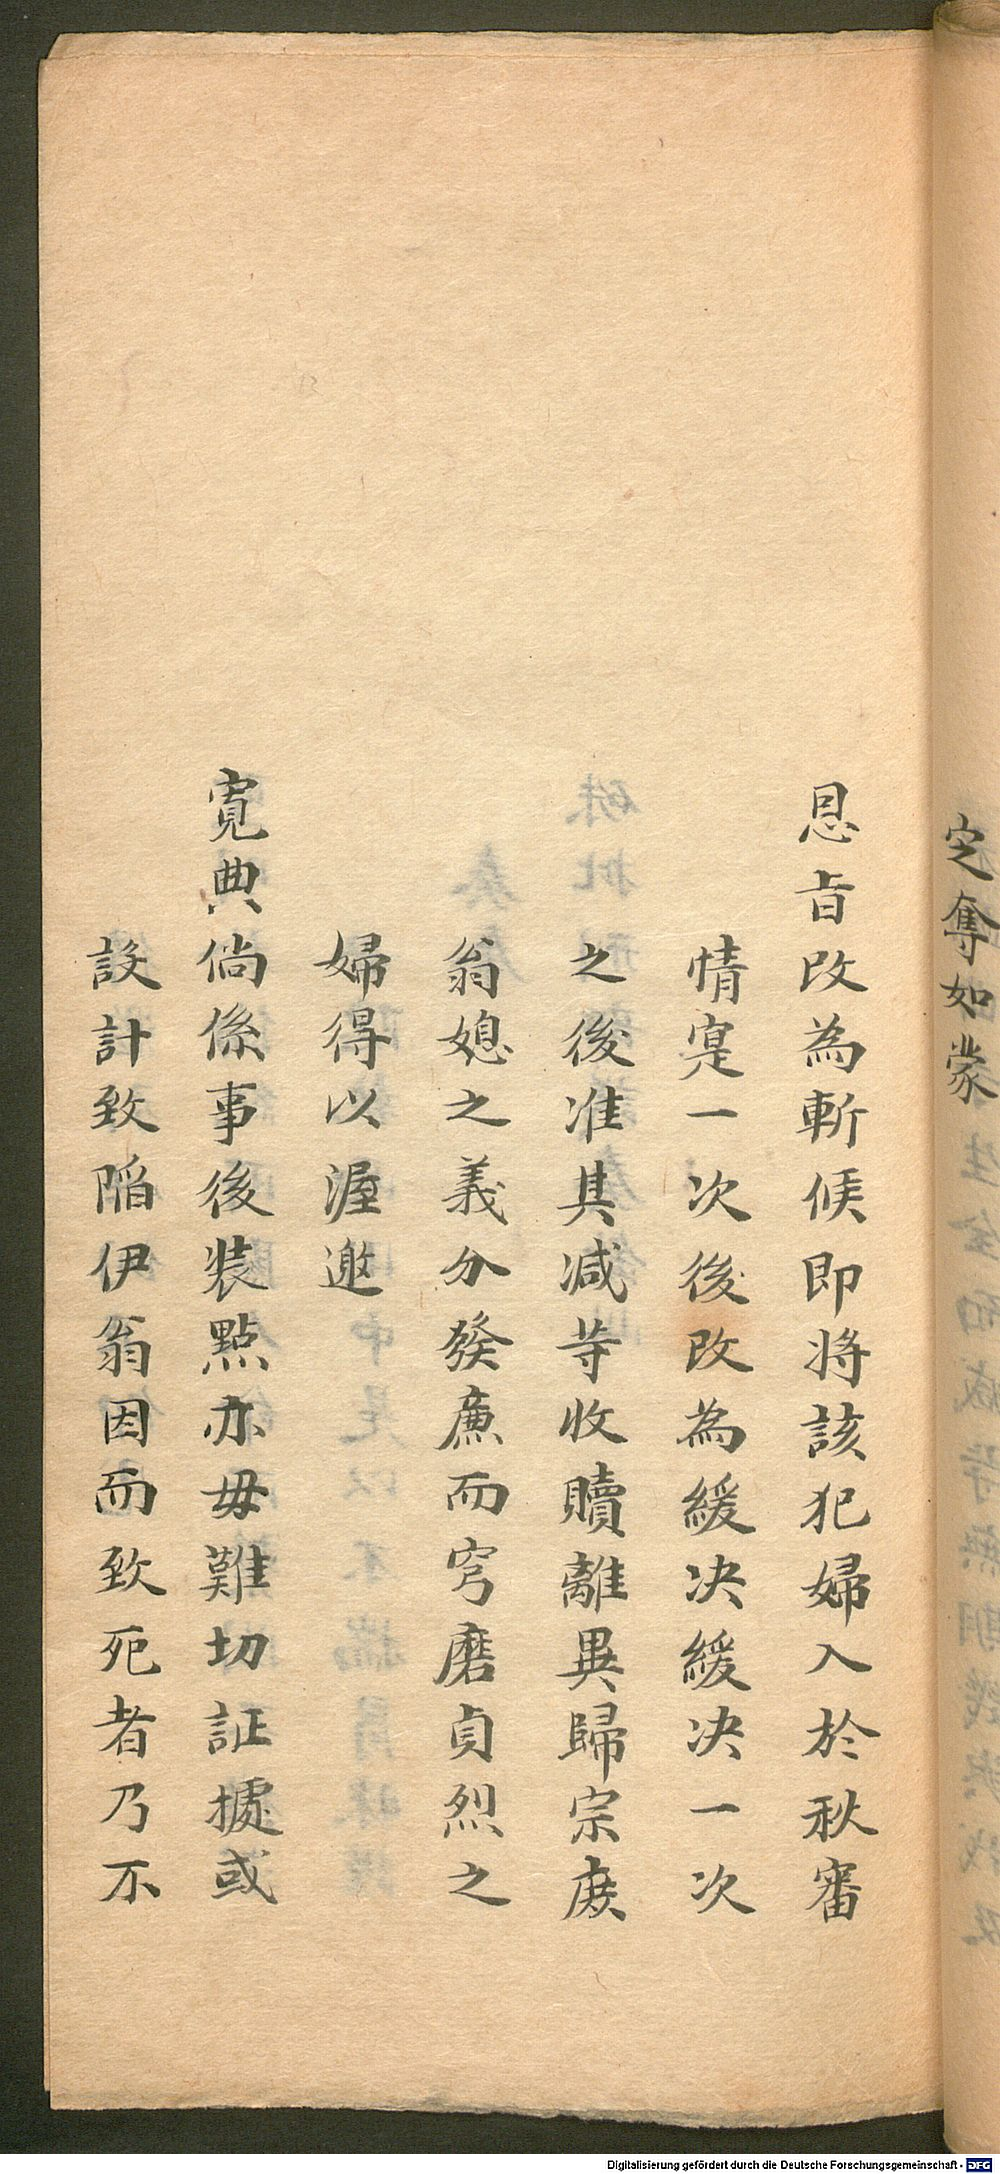 定奪如蒙
恩旨改為斬候即將該犯婦入於秋審
情寔一次後改為緩决緩决一次
之後准其减等收贖離異歸宗庻
翁媳之義分發廉而穹磨貞烈之
婦得以渥邀
寛典倘係事後装點亦毋難切証據或
設計致陷伊翁因而致死者乃不
Digitalisierung gefördert durch die Deutsche Forschungsgemeinschaft - DFG